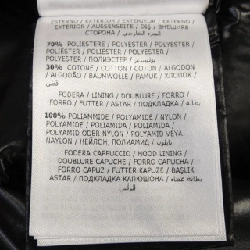 ESTERNO / EXTERIOR / EXTERIEUR / EXTERNO
EXTERIOR / AUSSENSEITE / DIŞ / ВНЕШНЯЯ
СТОРОНА /
70% POLIESTERE / POLYESTER / POLYESTER /
POLIÉSTER / POLIÉSTER / POLYESTER /
POLYESTER / ПОЛИЭСТЕР / بوليستر
30% COTONE / COTTON / COTON / ALGODÓN /
ALGODÃO / BAUMWOLLE / PAMUK / ХЛОПОК /
قطن
FODERA / LINING / DOUBLURE / FORRO /
FORRO / FUTTER / ASTAR / ПОДКЛАДКА /
100% POLIAMMIDE / POLYAMIDE / NYLON /
POLYAMIDE / POLIAMIDA / POLIAMIDA /
POLYAMID ODER NYLON / POLYAMID VEYA
NAYLON / НЕЙЛОН, ПОЛИАМИД /
FODERA CAPPUCCIO / HOOD LINING /
DOUBLURE CAPUCHE / FORRO CAPUCHA /
FORRO CAPUZ / FUTTER KAPUZE / BAŞLIK
ASTAR / ПОДКЛАДКА КАПЮШОНА /